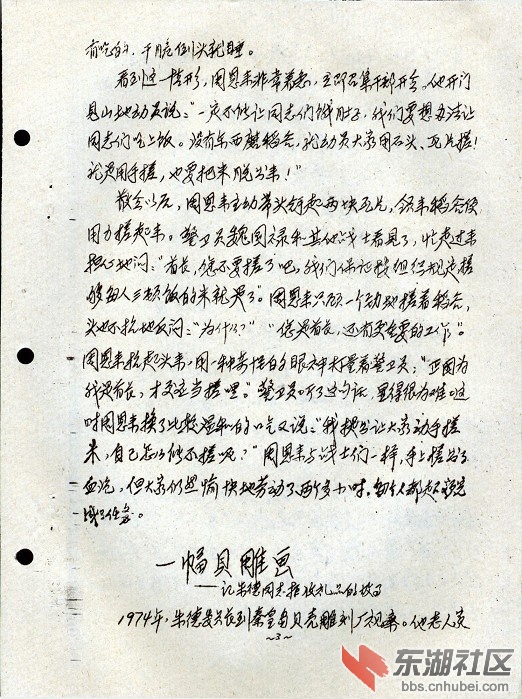 有吃的，干脆倒头就睡。
看到这一情形，周恩来非常着急，立即召集干部开会。他开门
见山地动员说：“一定不能让同志们饿肚子，我们要想办法让
同志们吃上饭。没有东西磨稻谷，就动员大家用石头、瓦片搓！
就是用手搓，也要把米脱出来！”
散会以后，周恩来主动带头领起两块瓦片，领来稻谷使
用力搓起来。警卫员魏国禄和其他战士看见了，忙走过来
担心地问：“首长，您不要搓了吧，我们保证按组织规定搓
够每人三顿饭的米就是了”。周恩来只顾一个劲地搓着稻谷，
头也不抬地反问：“为什么？”“您是首长，还有更重要的工作”。
周恩来抬起头来，用一种奇怪的眼神打量着警卫员：“正因为
我是首长，才更应当搓嘿。”警卫员听了这句话，显得很为难。这
时周恩来换了比较温和的口气又说：“我提出让大家动手搓
米，自己怎么能不搓呢？”周恩来与战士们一样，手上搓出了
血泡，但大家仍然愉快地劳动了两个多小时，每个人都超额完
成了任务。
一幅贝雕画
——记朱德同志拒收礼品的故事
1974年，朱德委员长到秦皇岛贝壳雕刻厂视察。他老人家
~3~
东湖社区
bbs.cnhubei.com